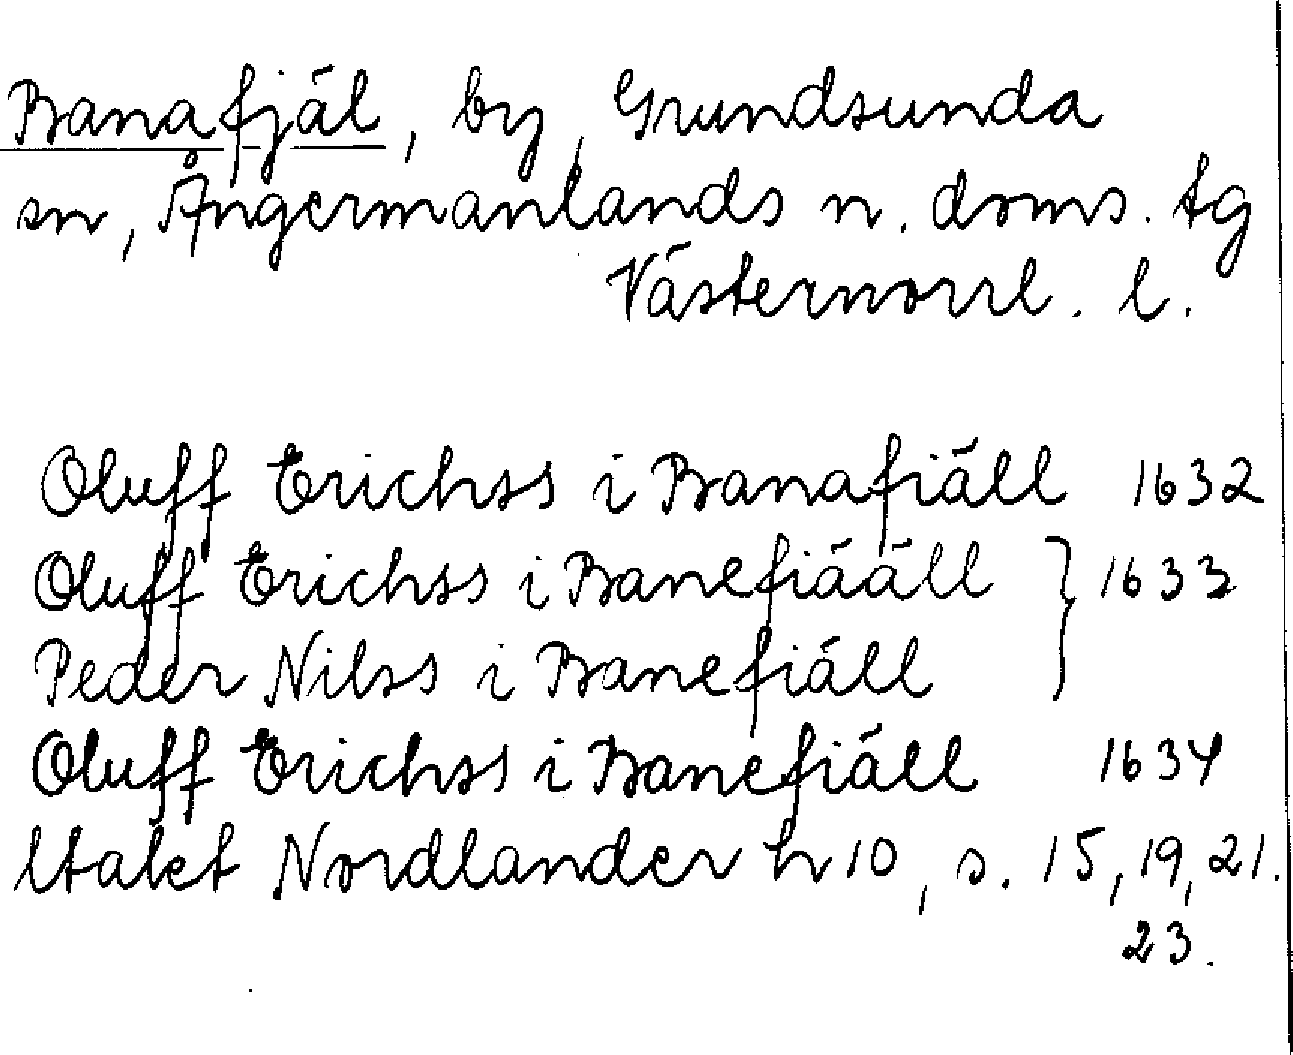 Banafjäl, by, Grundsunda
sn, Ångermanlands n. doms. tg
Västernorrl. l.
Oluff Erichss i Banafiäll 1632
Oluff Erichss i Banefiääll } 1633
Peder Nilss i Banefiäll
Oluff Erichss i Banefiäll 1634
Utalet Nordlander h 10, s. 15, 19, 21.
23.